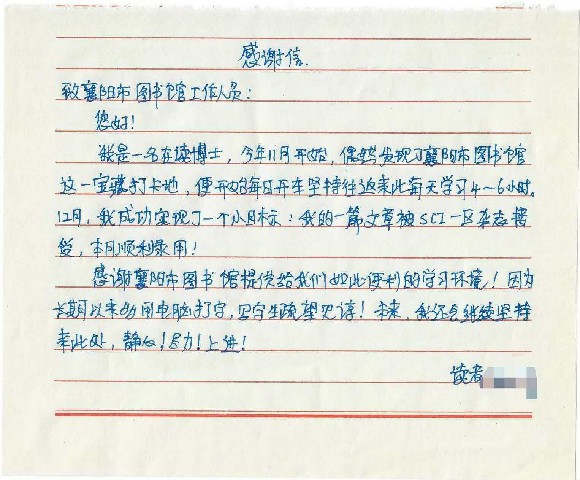 感谢信
致襄阳市图书馆工作人员：
您好！
我是一名在读博士，今年11月开始，偶然发现了襄阳市图书馆
这一宝藏打卡地，便开始每日开车坚持往返来此每天学习4～6小时。
12月，我成功实现了一个小目标：我的一篇文章被SCI一区杂志接
受，本月顺利录用！
感谢襄阳市图书馆提供给我们如此便利的学习环境！因为
长期以来多用电脑打字，写字生疏望见谅！未来，我还会继续坚持
来此处，静心！努力！上进！
读者